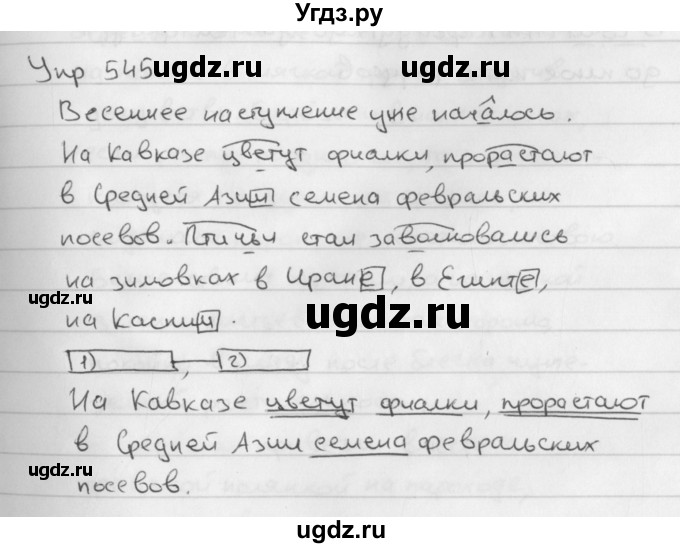 Угдз.ру
Упр 545 ugdz.ru ugdz.ru
Весеннее наступление уже началось.
На Кавказе цветут фиалки, прорастают
в Средней Азии семена февральских
посевов. Птичьи стаи заволновались
на зимовках в Иране, в Египте,
ugdz.ru
на Каспии. ugdz.ru
1) , 2)
На Кавказе цветут фиалки, прорастают
в Средней Азии семена февральских
ugdz.ru
посевов.
ugdz.ru